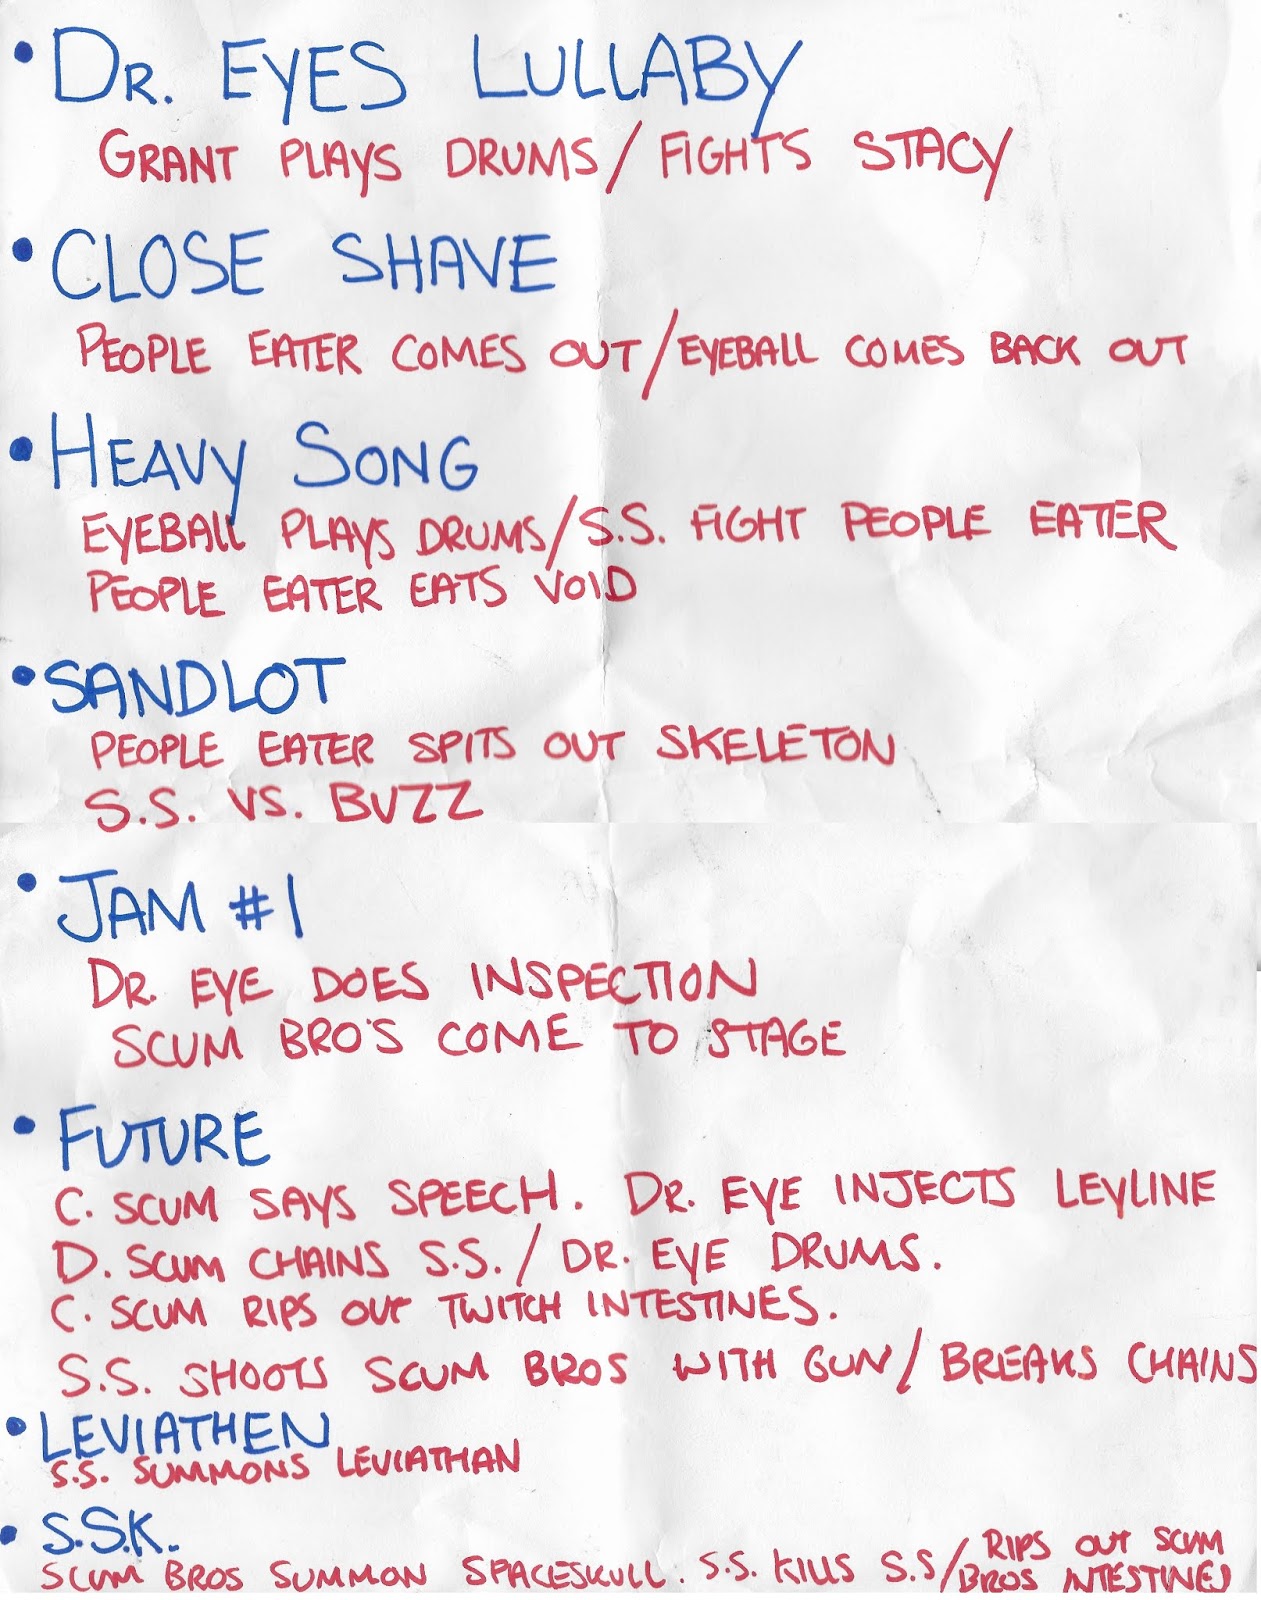 • DR. EYES LULLABY
GRANT PLAYS DRUMS / FIGHTS STACY
• CLOSE SHAVE
PEOPLE EATER COMES OUT / EYEBALL COMES BACK OUT
• HEAVY SONG
EYEBALL PLAYS DRUMS / S.S. FIGHT PEOPLE EATER
PEOPLE EATER EATS VOID
• SANDLOT
PEOPLE EATER SPITS OUT SKELETON
S.S. VS. BUZZ
• JAM #1
DR. EYE DOES INSPECTION
SCUM BRO'S COME TO STAGE
• FUTURE
C. SCUM SAYS SPEECH. DR. EYE INJECTS LEYLINE
D. SCUM CHAINS S.S. / DR. EYE DRUMS.
C. SCUM RIPS OUT TWITCH INTESTINES.
S.S. SHOOTS SCUM BROS WITH GUN / BREAKS CHAINS
• LEVIATHEN
S.S. SUMMONS LEVIATHAN
• S.S.K.
SCUM BROS SUMMON SPACESKULL. S.S. KILLS S.S / RIPS OUT SCUM
BROS INTESTINES